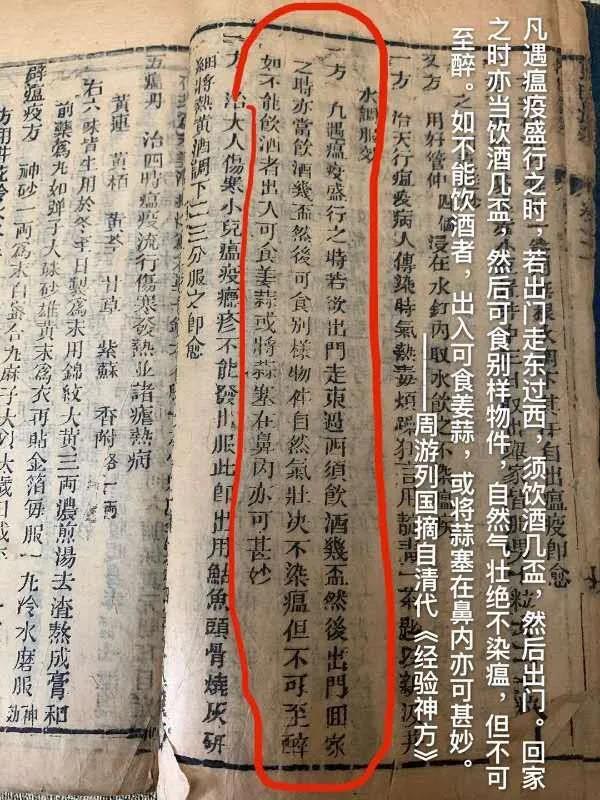 凡遇瘟疫盛行之时，若出门走东过西，须饮酒几盃，然后出门。回家
之时亦当饮酒几盃，然后可食别样物件，自然气壮绝不染瘟，但不可
至醉。如不能饮酒者，出入可食姜蒜，或将蒜塞在鼻内亦可甚妙。
——周游列国摘自清代《经验神方》
自出瘟疫卽愈
又方 用好管仲四個浸在水缸內取水飲之不染瘟疾
一方 治天行瘟疫病人傳染時氣熱毒煩躁狂言用靛青一茶匙以新汲井
水調服効
一方 凢遇瘟疫盛行之時若欲出門走東過西須飲酒幾盃然後出門囬家
之時亦當飲酒幾盃然後可食别樣物件自然氣壯决不染瘟但不可至醉
如不能飲酒者出入可食姜蒜或將蒜塞在鼻內亦可甚妙
一方 治大人傷寒小兒瘟疫癍疹不能發出服此卽出用鮎魚頭骨燒灰研
細將熱黃酒調下二三分服之卽愈
五瘟丹 治四時瘟疫流行傷寒發熱並諸瘧熱病
黃連 黃栢 黃芩 甘草 紫蘇 香附各一両
右六味皆生用於冬至日製爲末用錦紋大黃三両濃煎湯去渣熬成膏和
前藥爲丸如彈子大硃砂雄黃末爲衣再貼金箔每服一丸冷水磨服神効
辟瘟疫方 神砂一両爲末白蜜合丸麻子大以太歲日